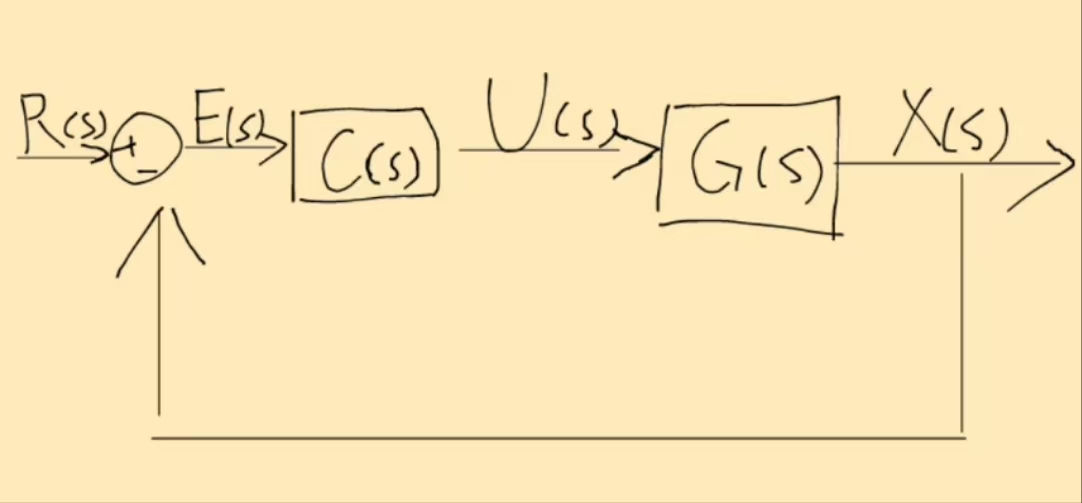 R(s) + - E(s) C(s) U(s) G(s) X(s)